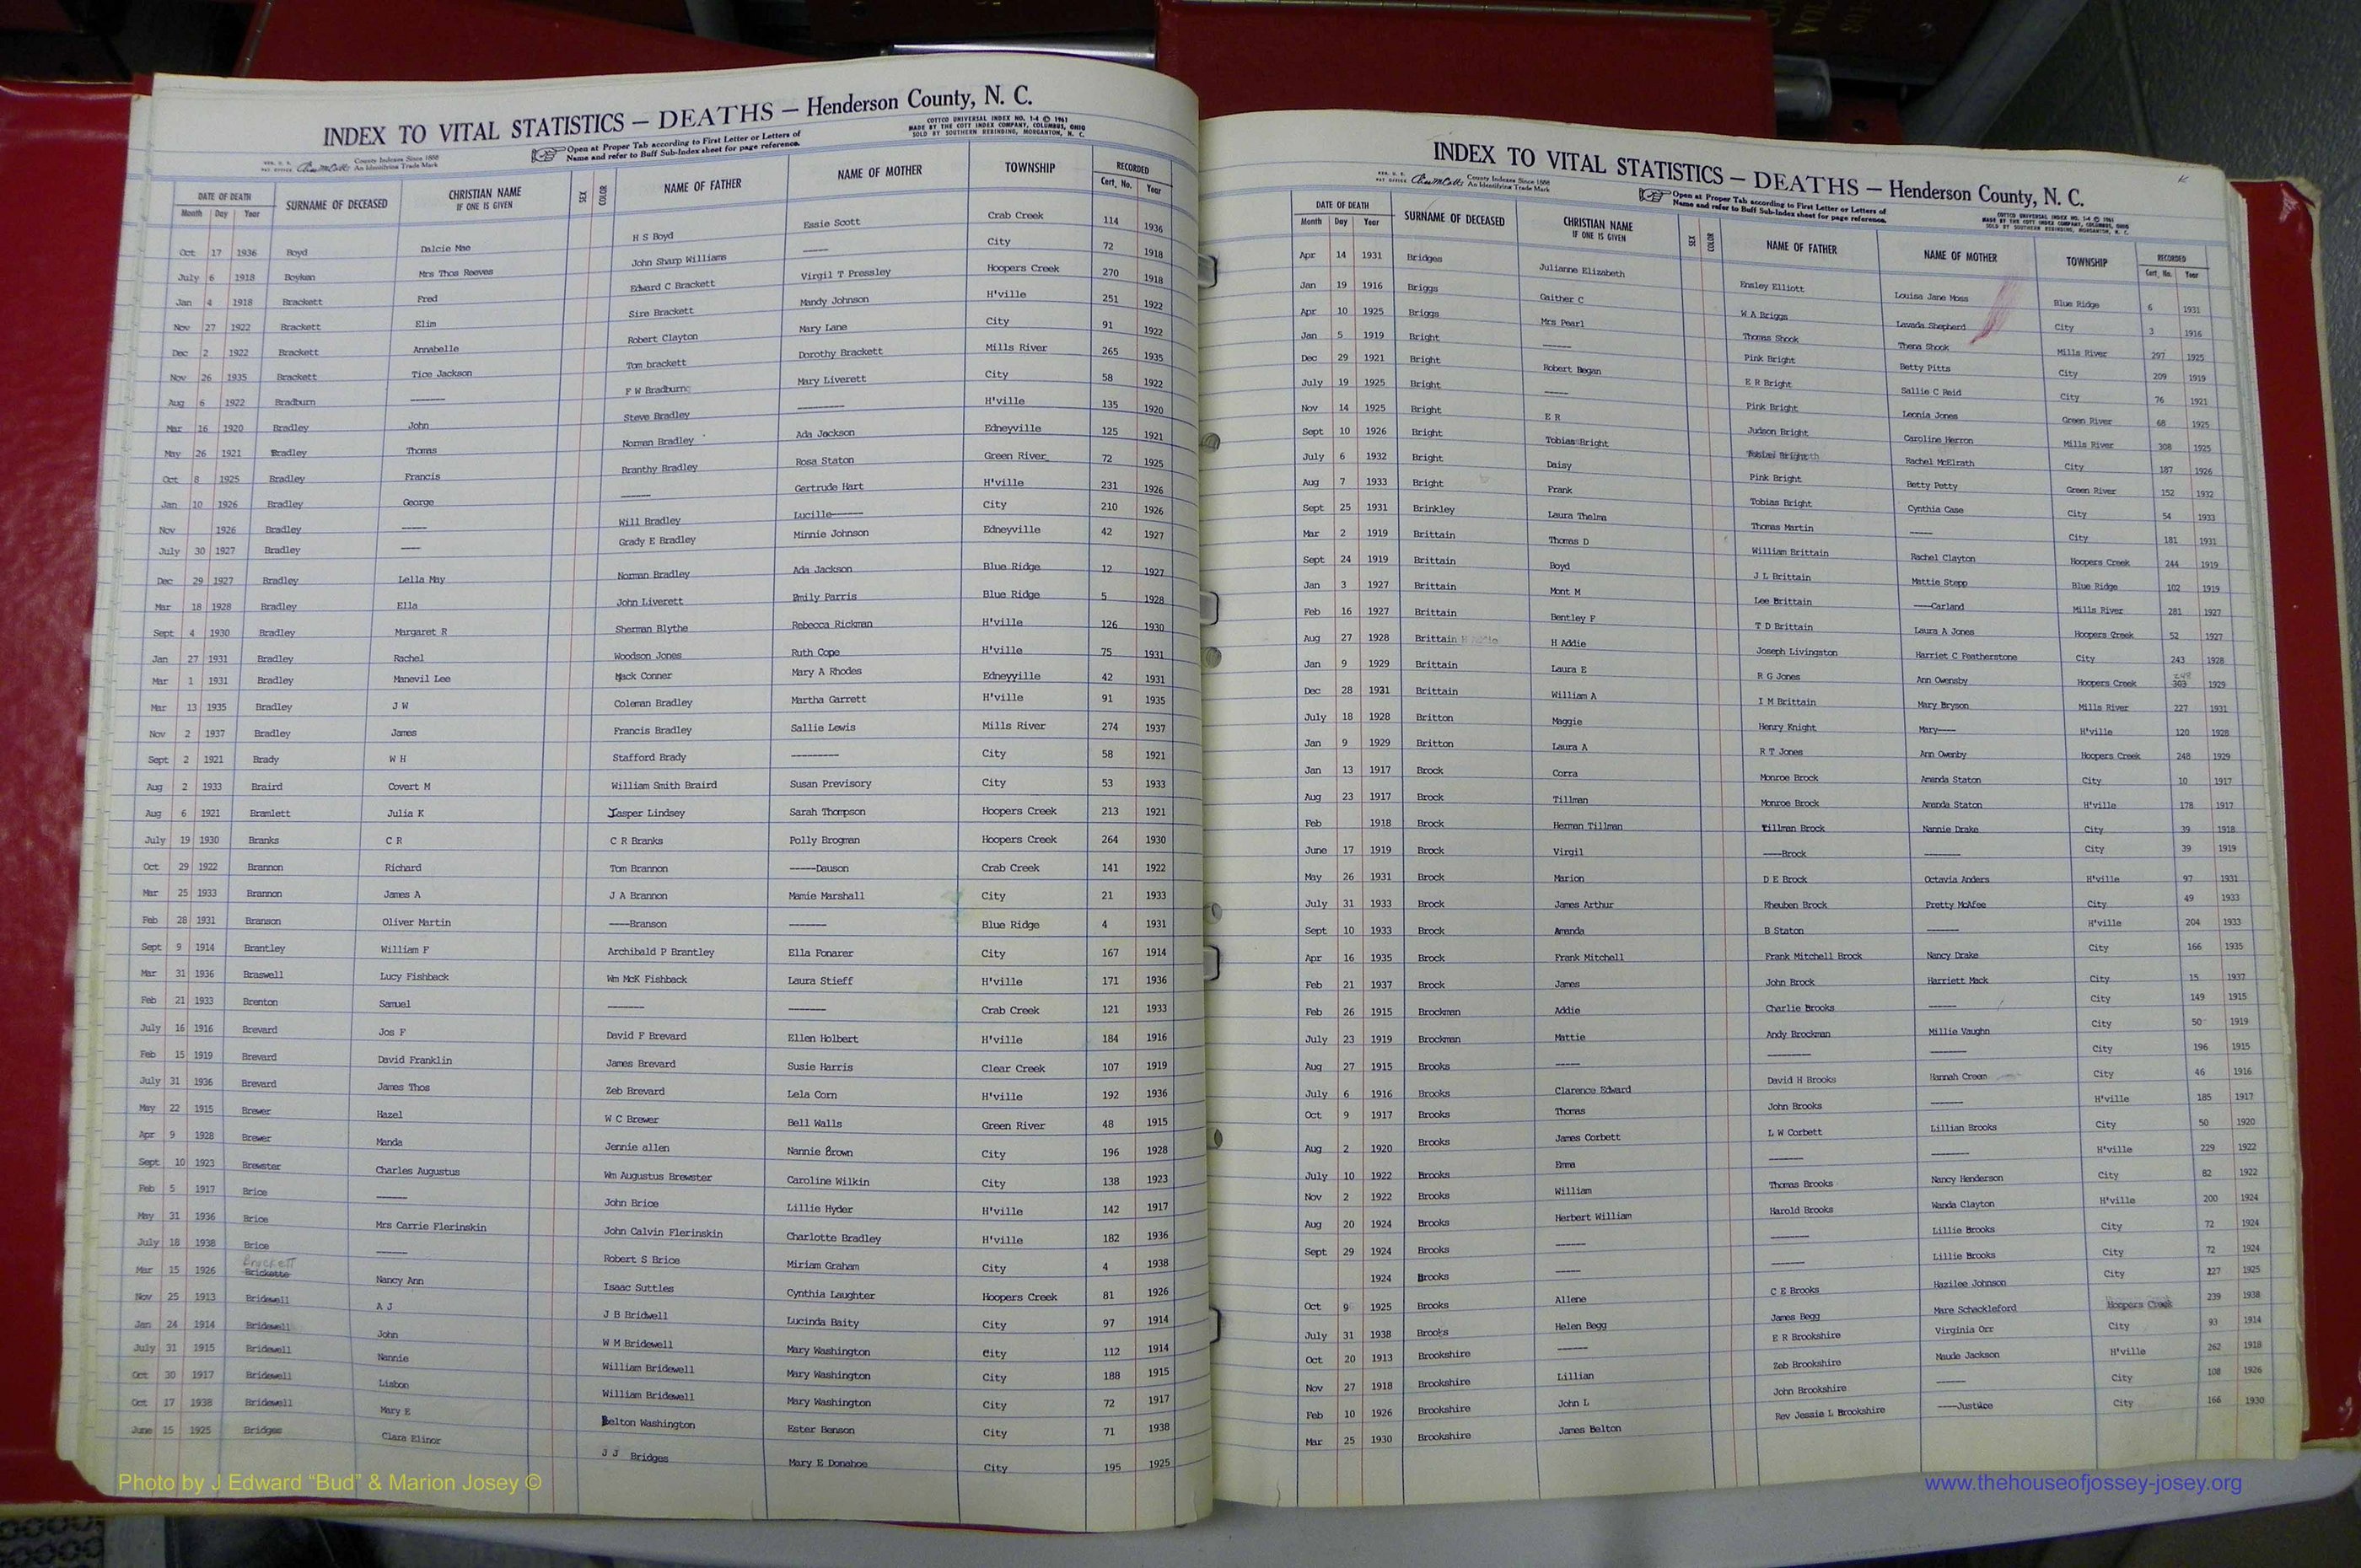 INDEX TO VITAL STATISTICS — DEATHS — Henderson County, N. C.
COTTCO UNIVERSAL INDEX NO. 1-4 © 1961
MADE BY THE COTT INDEX COMPANY, COLUMBUS, OHIO
SOLD BY SOUTHERN REBINDING, MORGANTON, N. C.
County Indexes Since 1888
An Identifying Trade Mark
Open at Proper Tab according to First Letter or Letters of
Name and refer to Buff Sub-Index sheet for page reference.
DATE OF DEATH SURNAME OF DECEASED CHRISTIAN NAME IF ONE IS GIVEN SEX COLOR NAME OF FATHER NAME OF MOTHER TOWNSHIP RECORDED
Month Day Year Cert. No. Year
Oct 17 1936 Boyd Dalcie Mae H S Boyd Essie Scott Crab Creek 114 1936
July 6 1918 Boyken Mrs Thos Reeves John Sharp Williams ----- City 72 1918
Jan 4 1918 Brackett Fred Edward C Brackett Virgil T Pressley Hoopers Creek 270 1918
Nov 27 1922 Brackett Elim Sire Brackett Mandy Johnson H'ville 251 1922
Dec 2 1922 Brackett Annabelle Robert Clayton Mary Lane City 91 1922
Nov 26 1935 Brackett Tice Jackson Tom brackett Dorothy Brackett Mills River 265 1935
Aug 6 1922 Bradburn ------- F W Bradburn Mary Liverett City 58 1922
Mar 16 1920 Bradley John Steve Bradley --------- H'ville 135 1920
May 26 1921 Bradley Thomas Norman Bradley Ada Jackson Edneyville 125 1921
Oct 8 1925 Bradley Francis Branthy Bradley Rosa Staton Green River 72 1925
Jan 10 1926 Bradley George ------ Gertrude Hart H'ville 231 1926
Nov 1926 Bradley ----- Will Bradley Lucille------ City 210 1926
July 30 1927 Bradley ---- Grady E Bradley Minnie Johnson Edneyville 42 1927
Dec 29 1927 Bradley Lella May Norman Bradley Ada Jackson Blue Ridge 12 1927
Mar 18 1928 Bradley Ella John Liverett Emily Parris Blue Ridge 5 1928
Sept 4 1930 Bradley Margaret R Sherman Blythe Rebecca Rickman H'ville 126 1930
Jan 27 1931 Bradley Rachel Woodson Jones Ruth Cope H'ville 75 1931
Mar 1 1931 Bradley Manevil Lee Mack Conner Mary A Rhodes Edneyville 42 1931
Mar 13 1935 Bradley J W Coleman Bradley Martha Garrett H'ville 91 1935
Nov 2 1937 Bradley James Francis Bradley Sallie Lewis Mills River 274 1937
Sept 2 1921 Brady W H Stafford Brady --------- City 58 1921
Aug 2 1933 Braird Covert M William Smith Braird Susan Previsory City 53 1933
Aug 6 1921 Bramlett Julia K Jasper Lindsey Sarah Thompson Hoopers Creek 213 1921
July 19 1930 Branks C R C R Branks Polly Brogman Hoopers Creek 264 1930
Oct 29 1922 Brannon Richard Tom Brannon -----Dauson Crab Creek 141 1922
Mar 25 1933 Brannon James A J A Brannon Mamie Marshall City 21 1933
Feb 28 1931 Branson Oliver Martin ----Branson ------- Blue Ridge 4 1931
Sept 9 1914 Brantley William F Archibald P Brantley Ella Fonarer City 167 1914
Mar 31 1936 Braswell Lucy Fishback Wm McK Fishback Laura Stieff H'ville 171 1936
Feb 21 1933 Brenton Samuel ------- ------- Crab Creek 121 1933
July 16 1916 Brevard Jos F David F Brevard Ellen Holbert H'ville 184 1916
Feb 15 1919 Brevard David Franklin James Brevard Susie Harris Clear Creek 107 1919
July 31 1936 Brevard James Thos Zeb Brevard Lela Corn H'ville 192 1936
May 22 1915 Brewer Hazel W C Brewer Bell Walls Green River 48 1915
Apr 9 1928 Brewer Manda Jennie allen Nannie Brown City 196 1928
Sept 10 1923 Brewster Charles Augustus Wm Augustus Brewster Caroline Wilkin City 138 1923
Feb 5 1917 Brice ------ John Brice Lillie Hyder H'ville 142 1917
May 31 1936 Brice Mrs Carrie Flerinskin John Calvin Flerinskin Charlotte Bradley H'ville 182 1936
July 18 1938 Brice ------ Robert S Brice Miriam Graham City 4 1938
Brackett
Mar 15 1926 Brickette Nancy Ann Isaac Suttles Cynthia Laughter Hoopers Creek 81 1926
Nov 25 1913 Bridewell A J J B Bridwell Lucinda Baity City 97 1914
Jan 24 1914 Bridewell John W M Bridewell Mary Washington City 112 1914
July 31 1915 Bridewell Nannie William Bridewell Mary Washington City 188 1915
Oct 30 1917 Bridewell Lisbon William Bridewell Mary Washington City 72 1917
Oct 17 1938 Bridewell Mary E Belton Washington Ester Benson City 71 1938
June 15 1925 Bridges Clara Elinor J J Bridges Mary E Donahoe City 195 1925
INDEX TO VITAL STATISTICS — DEATHS — Henderson County, N. C.
County Indexes Since 1888
An Identifying Trade Mark
Open at Proper Tab according to First Letter or Letters of
Name and refer to Buff Sub-Index sheet for page reference.
COTTCO UNIVERSAL INDEX NO. 1-4 © 1961
MADE BY THE COTT INDEX COMPANY, COLUMBUS, OHIO
SOLD BY SOUTHERN REBINDING, MORGANTON, N. C.
DATE OF DEATH SURNAME OF DECEASED CHRISTIAN NAME IF ONE IS GIVEN SEX COLOR NAME OF FATHER NAME OF MOTHER TOWNSHIP RECORDED
Month Day Year Cert. No. Year
Apr 14 1931 Bridges Julianne Elizabeth Ensley Elliott Louisa Jane Moss Blue Ridge 6 1931
Jan 19 1916 Briggs Gaither C W A Briggs Lavada Shepherd City 3 1916
Apr 10 1925 Briggs Mrs Pearl Thomas Shook Thena Shook Mills River 297 1925
Jan 5 1919 Bright ----- Pink Bright Betty Pitts City 209 1919
Dec 29 1921 Bright Robert Began E R Bright Sallie C Reid City 76 1921
July 19 1925 Bright ----- Pink Bright Leonia Jones Green River 68 1925
Nov 14 1925 Bright E R Judson Bright Caroline Herron Mills River 308 1925
Sept 10 1926 Bright Tobias Bright Tobias Bright Rachel McElrath City 187 1926
July 6 1932 Bright Daisy Pink Bright Betty Petty Green River 152 1932
Aug 7 1933 Bright Frank Tobias Bright Cynthia Case City 54 1933
Sept 25 1931 Brinkley Laura Thelma Thomas Martin ----- City 181 1931
Mar 2 1919 Brittain Thomas D William Brittain Rachel Clayton Hoopers Creek 244 1919
Sept 24 1919 Brittain Boyd J L Brittain Mattie Stepp Blue Ridge 102 1919
Jan 3 1927 Brittain Mont M Lee Brittain ----Carland Mills River 281 1927
Feb 16 1927 Brittain Bentley F T D Brittain Laura A Jones Hoopers Creek 52 1927
Aug 27 1928 Brittain H Addie Joseph Livingston Harriet C Featherstone City 243 1928
Jan 9 1929 Brittain Laura E R G Jones Ann Owensby Hoopers Creek 303 248 1929
Dec 28 1931 Brittain William A I M Brittain Mary Bryson Mills River 227 1931
July 18 1928 Britton Maggie Henry Knight Mary---- H'ville 120 1928
Jan 9 1929 Britton Laura A R T Jones Ann Owenby Hoopers Creek 248 1929
Jan 13 1917 Brock Corra Monroe Brock Amanda Staton City 10 1917
Aug 23 1917 Brock Tillman Monroe Brock Amanda Staton H'ville 178 1917
Feb 1918 Brock Herman Tillman Tillman Brock Nannie Drake City 39 1918
June 17 1919 Brock Virgil ----Brock ------- City 39 1919
May 26 1931 Brock Marion D E Brock Octavia Anders H'ville 97 1931
July 31 1933 Brock James Arthur Rheuben Brock Pretty McAfee City 49 1933
Sept 10 1933 Brock Amanda B Staton ------ H'ville 204 1933
Apr 16 1935 Brock Frank Mitchell Frank Mitchell Brock Nancy Drake City 166 1935
Feb 21 1937 Brock James John Brock Harriett Mack City 15 1937
Feb 26 1915 Brockman Addie Charlie Brooks ----- City 149 1915
July 23 1919 Brockman Mattie Andy Brockman Millie Vaughn City 50 1919
Aug 27 1915 Brooks ----- --------- ------- City 196 1915
July 6 1916 Brooks Clarence Edward David H Brooks Hannah Creem City 46 1916
Oct 9 1917 Brooks Thomas John Brooks ------- H'ville 185 1917
Aug 2 1920 Brooks James Corbett L W Corbett Lillian Brooks City 50 1920
July 10 1922 Brooks Emma ------- ------- H'ville 229 1922
Nov 2 1922 Brooks William Thomas Brooks Nancy Henderson City 82 1922
Aug 20 1924 Brooks Herbert William Harold Brooks Wanda Clayton H'ville 200 1924
Sept 29 1924 Brooks ------ -------- Lillie Brooks City 72 1924
1924 Brooks ----- ------- Lillie Brooks City 72 1924
Oct 9 1925 Brooks Allene C E Brooks Hazilee Johnson City 227 1925
July 31 1938 Brooks Helen Begg James Begg Mare Schackleford Hoopers Creek 239 1938
Oct 20 1913 Brookshire ------ E R Brookshire Virginia Orr City 93 1914
Nov 27 1918 Brookshire Lillian Zeb Brookshire Maude Jackson H'ville 262 1918
Feb 10 1926 Brookshire John L John Brookshire ------ City 108 1926
Mar 25 1930 Brookshire James Belton Rev Jessie L Brookshire ----Justice City 166 1930
Photo by J Edward “Bud” & Marion Josey ©
www.thehouseofjossey-josey.org